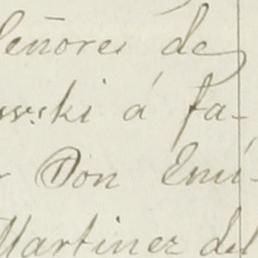 Señores de
wski á fa-
r Don Emi-
Martinez del